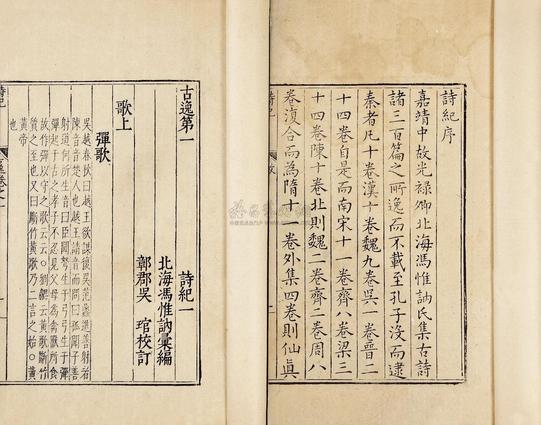 詩紀序
嘉靖中故光祿卿北海馮惟訥氏集古詩
諸三百篇之所逸而不載至孔子沒而逮
秦者凡十卷漢十卷魏九卷吳一卷晉二
十四卷自是而南宋十一卷齊八卷梁三
十四卷陳十卷北則魏二卷齊二卷周八
卷復合而為隋十卷外集四卷則仙真
古逸第一
詩紀一
北海馮惟訥彙編
鄣郡吳琯校訂
歌上
彈歌
吳越春秋曰越王欲謀復吳范蠡進善射者
陳音音楚人也越王請音而問曰孤聞子善
射道何所生音曰臣聞弩生于弓弓生于彈
彈起于古之孝子不忍見父母為禽獸所食
故作彈以守之歌云云○劉勰云黃歌斷竹
質之至也又曰斷竹黃歌乃二言之始○黃
黃帝
也